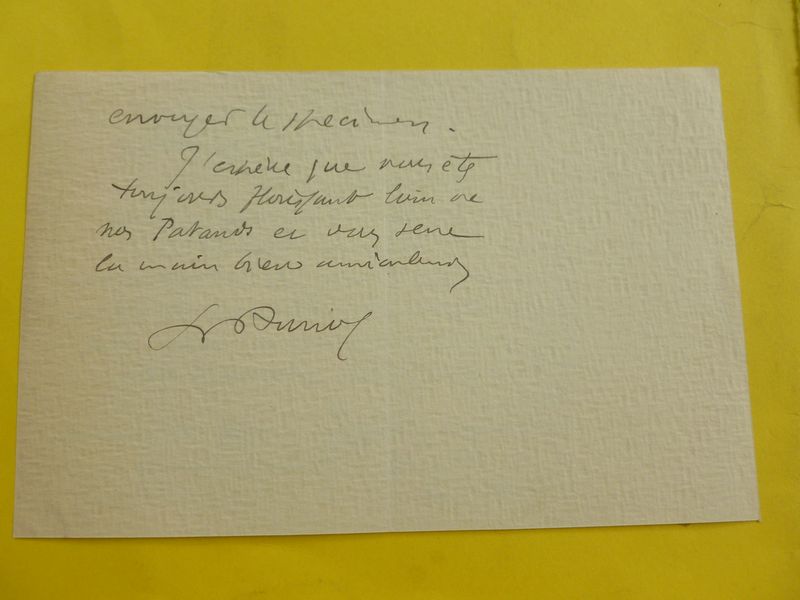 envoyer le specimen.
J'espère que vous êtes
toujours florissant loin de
nos Patauds et vous serre
la main bien amicalement